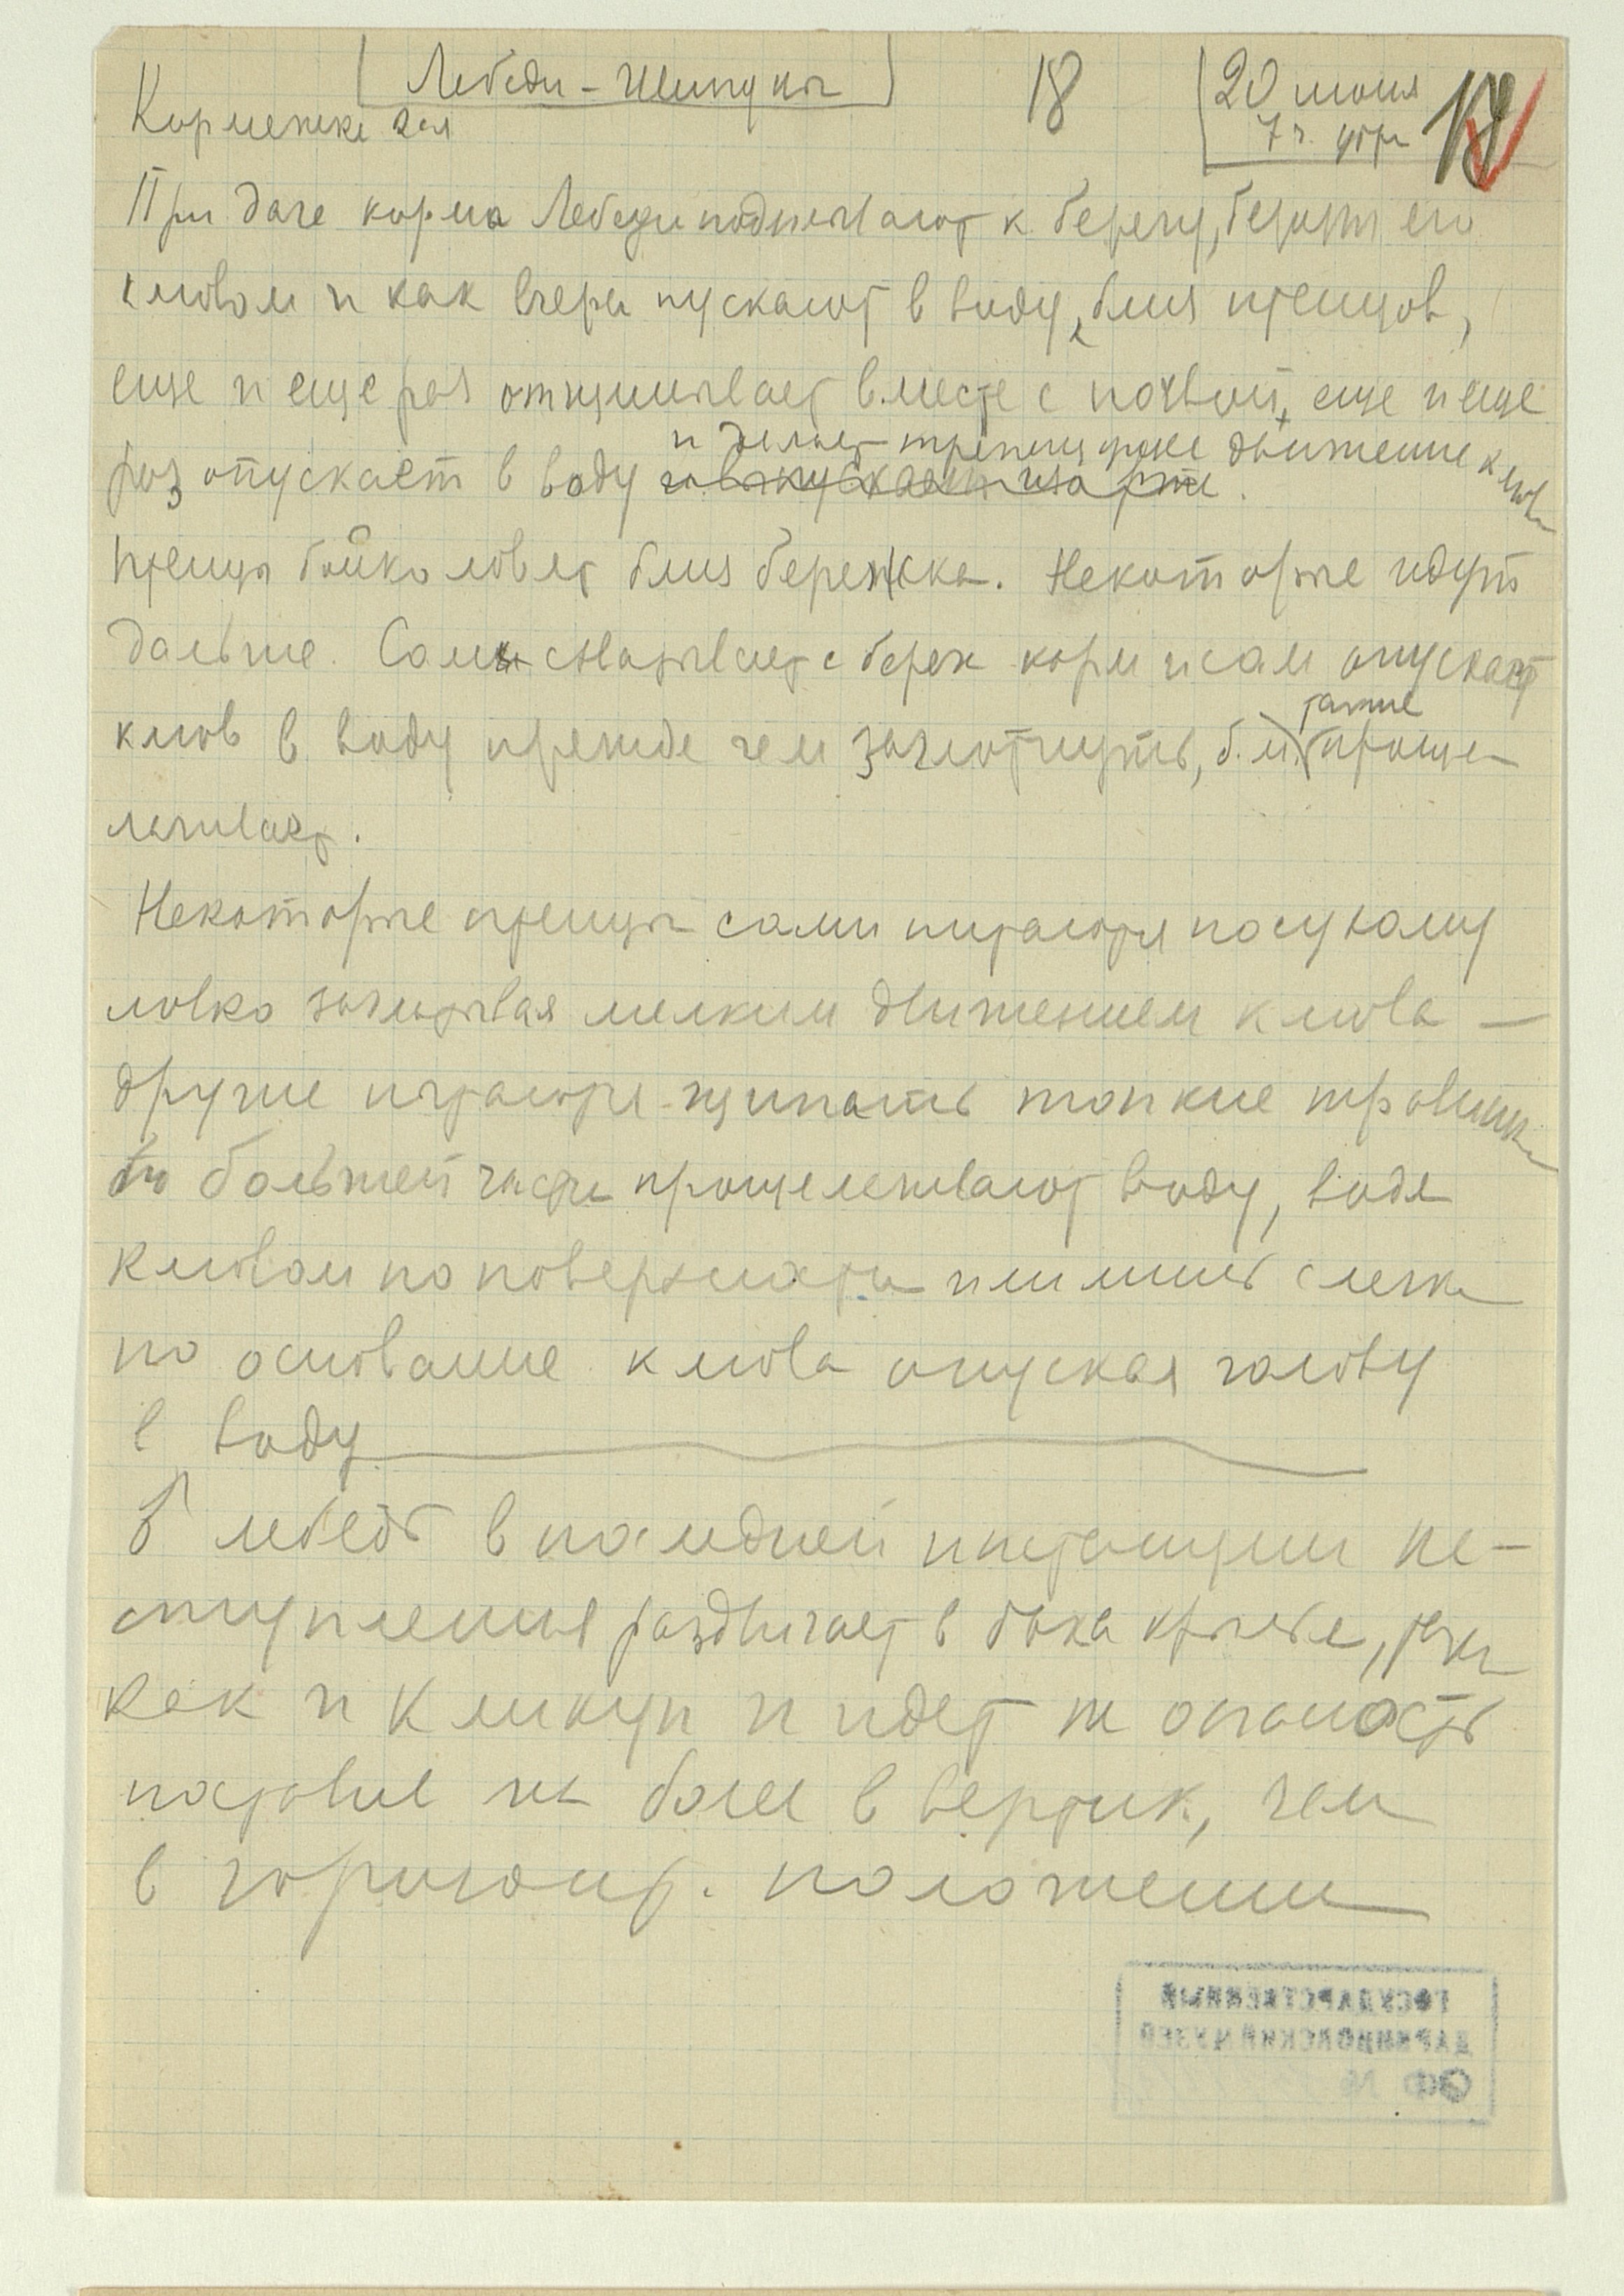 Лебеди-Шипуны
18
20 июня
7 ч. утра
18
Кормежка 2ая
При даче корма Лебеди подплывают к берегу, берут его
клювом и как вчера пускают в воду, близ птенцов,
еще и еще раз отщипывает вместе с почвой, еще и еще
и делает трепещущие движение клюва
раз опускает в воду
Птенцы бойко ловят близ бережка. Некоторые идут
дальше. Самк схватывает с берега корм и сам опускает
клюв в воду прежде чем заглотнуть, б.м. также проще-
лачивает.
Некоторые птенцы сами питаются по сухому
ловко заглатывая мелким движением клюва —
другие пытаются щипать тонкие травинки
по большей части прощелачивают воду, водя
клювом по поверхности или лишь слегка
по основание клюва опуская голову
в воду
Б лебедь в последней интонации на-
ступления раздвигает в бока крылья, так
как и Кликун и идет
поставив их более в вертик, чем
в горизонт. положении
ГОСУДАРСТВЕННЫЙ
ДАРВИНОВСКИЙ МУЗЕЙ
ОФ №